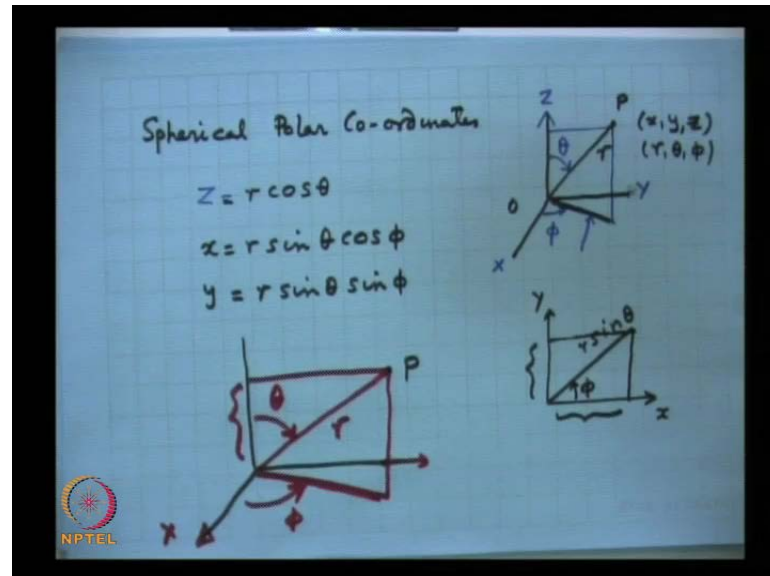 Spherical Polar Co-ordinates
Z = r cos θ
x = r sin θ cos φ
y = r sin θ sin φ
Z
P
(x, y, z)
(r, θ, φ)
θ
r
O
Y
φ
X
Y
r sin θ
φ
x
P
θ
r
φ
X
NPTEL